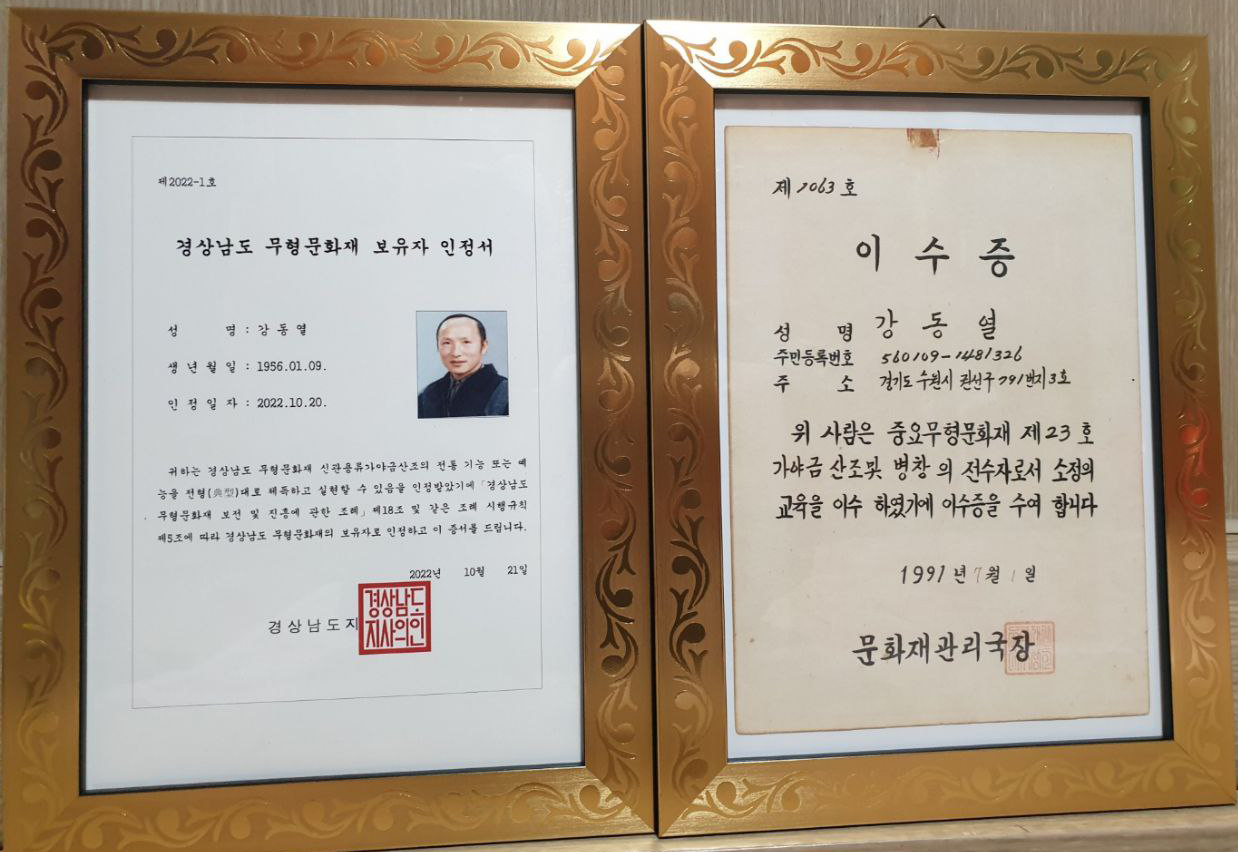 제2022-1호
경상남도 무형문화재 보유자 인정서
성 명 : 강동열
생년월일 : 1956.01.09.
인정일자 : 2022.10.20.
귀하는 경상남도 무형문화재 신관용류가야금산조의 전통 기능 또는 예
능을 전형(典型)대로 체득하고 실현할 수 있음을 인정받았기에 「경상남도
무형문화재 보전 및 진흥에 관한 조례」 제18조 및 같은 조례 시행규칙
제5조에 따라 경상남도 무형문화재의 보유자로 인정하고 이 증서를 드립니다.
2022년 10월 21일
경상남도지
경상남도
지사의인
제 1063 호
이 수 증
성 명 강 동 열
주민등록번호 560109-1481326
주 소 경기도 수원시 권선구 791번지 3호
위 사람은 중요무형문화재 제23호
가야금 산조및 병창의 전수자로서 소정의
교육을 이수 하였기에 이수증을 수여 합니다
1991년 7월 1일
문화재관리국장